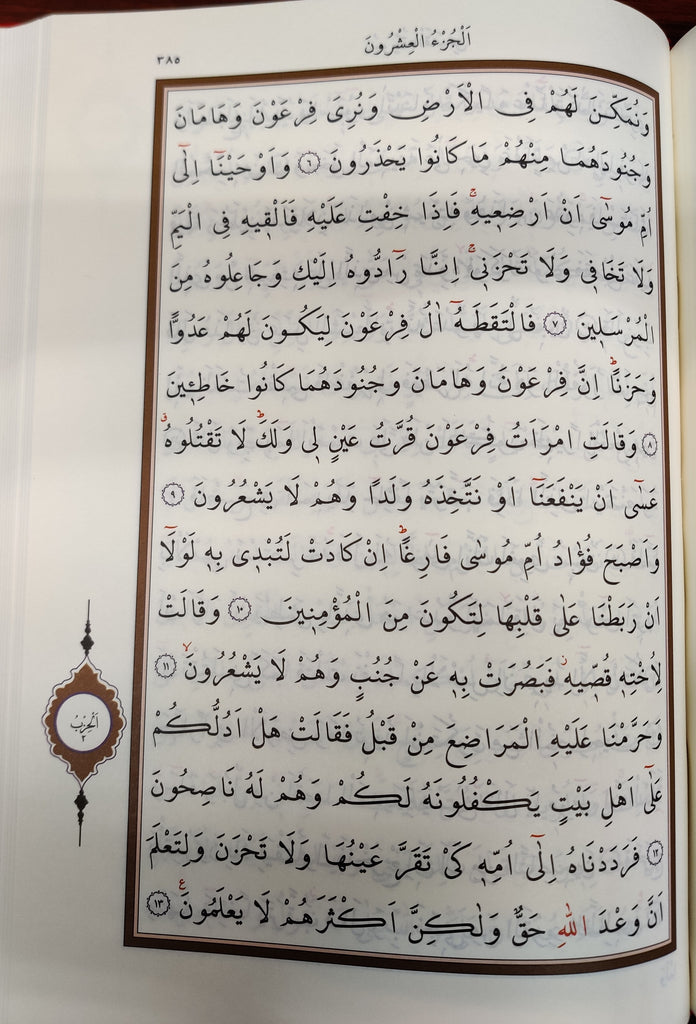 اَلْجُزْءُ الْعِشْرُونَ
٣٨٥
وَنُمَكِّنَ لَهُمْ فِى الْاَرْضِ وَنُرِىَ فِرْعَوْنَ وَهَامَانَ
وَجُنُودَهُمَا مِنْهُمْ مَا كَانُوا يَحْذَرُونَ ﴿٦﴾ وَاَوْحَيْنَٓا اِلٰٓى
اُمِّ مُوسٰٓى اَنْ اَرْضِعٖيهِۚ فَاِذَا خِفْتِ عَلَيْهِ فَاَلْقٖيهِ فِى الْيَمِّ
وَلَا تَخَافٖى وَلَا تَحْزَنٖىۚ اِنَّا رَٓادُّوهُ اِلَيْكِ وَجَاعِلُوهُ مِنَ
الْمُرْسَلٖينَ ﴿٧﴾ فَالْتَقَطَهُٓ اٰلُ فِرْعَوْنَ لِيَكُونَ لَهُمْ عَدُوًّا
وَحَزَنًاؕ اِنَّ فِرْعَوْنَ وَهَامَانَ وَجُنُودَهُمَا كَانُوا خَاطِـٖٔينَ
﴿٨﴾ وَقَالَتِ امْرَاَتُ فِرْعَوْنَ قُرَّتُ عَيْنٍ لٖى وَلَكَؕ لَا تَقْتُلُوهُۗ
عَسٰٓى اَنْ يَنْفَعَنَٓا اَوْ نَتَّخِذَهُ وَلَدًا وَهُمْ لَا يَشْعُرُونَ ﴿٩﴾
وَاَصْبَحَ فُؤٰادُ اُمِّ مُوسٰى فَارِغًاؕ اِنْ كَادَتْ لَتُبْدٖى بِهٖ لَوْلَٓا
اَنْ رَبَطْنَا عَلٰى قَلْبِهَا لِتَكُونَ مِنَ الْمُؤْمِنٖينَ ﴿١٠﴾ وَقَالَتْ
لِاُخْتِهٖ قُصّٖيهِؗ فَبَصُرَتْ بِهٖ عَنْ جُنُبٍ وَهُمْ لَا يَشْعُرُونَۙ ﴿١١﴾
وَحَرَّمْنَا عَلَيْهِ الْمَرَاضِعَ مِنْ قَبْلُ فَقَالَتْ هَلْ اَدُلُّكُمْ
عَلٰٓى اَهْلِ بَيْتٍ يَكْفُلُونَهُ لَكُمْ وَهُمْ لَهُ نَاصِحُونَ
﴿١٢﴾ فَرَدَدْنَاهُ اِلٰٓى اُمِّهٖ كَىْ تَقَرَّ عَيْنُهَا وَلَا تَحْزَنَ وَلِتَعْلَمَ
اَنَّ وَعْدَ اللّٰهِ حَقٌّ وَلٰكِنَّ اَكْثَرَهُمْ لَا يَعْلَمُونَࣖ ﴿١٣﴾
اَلْحِزْبُ